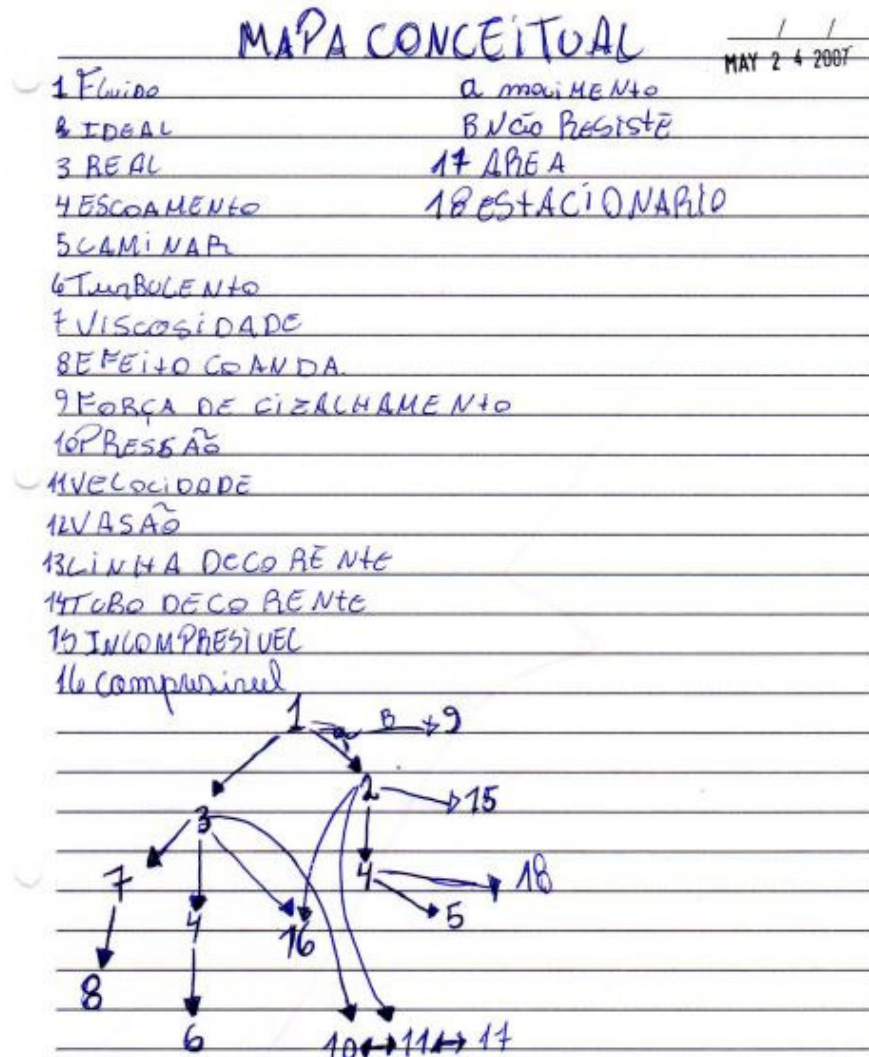 MAPA CONCEITUAL
/ /
MAY 2 4 2007
1 Fluido
2 IDEAL
3 REAL
4 ESCOAMENTO
5 LAMINAR
6 TURBULENTO
7 VISCOSIDADE
8 EFEITO COANDA
9 FORÇA DE CIZALHAMENTO
10 PRESSÃO
11 VELOCIDADE
12 VASÃO
13 LINHA DECORENTE
14 TUBO DECORENTE
15 INCOMPRESIVEL
16 Compresivel
a moviMENto
B Não RESISTE
17 AREA
18 ESTACIONARIO
1 a B 9
2 15
3
7 4 16 4 18
5
8
6 10 11 17